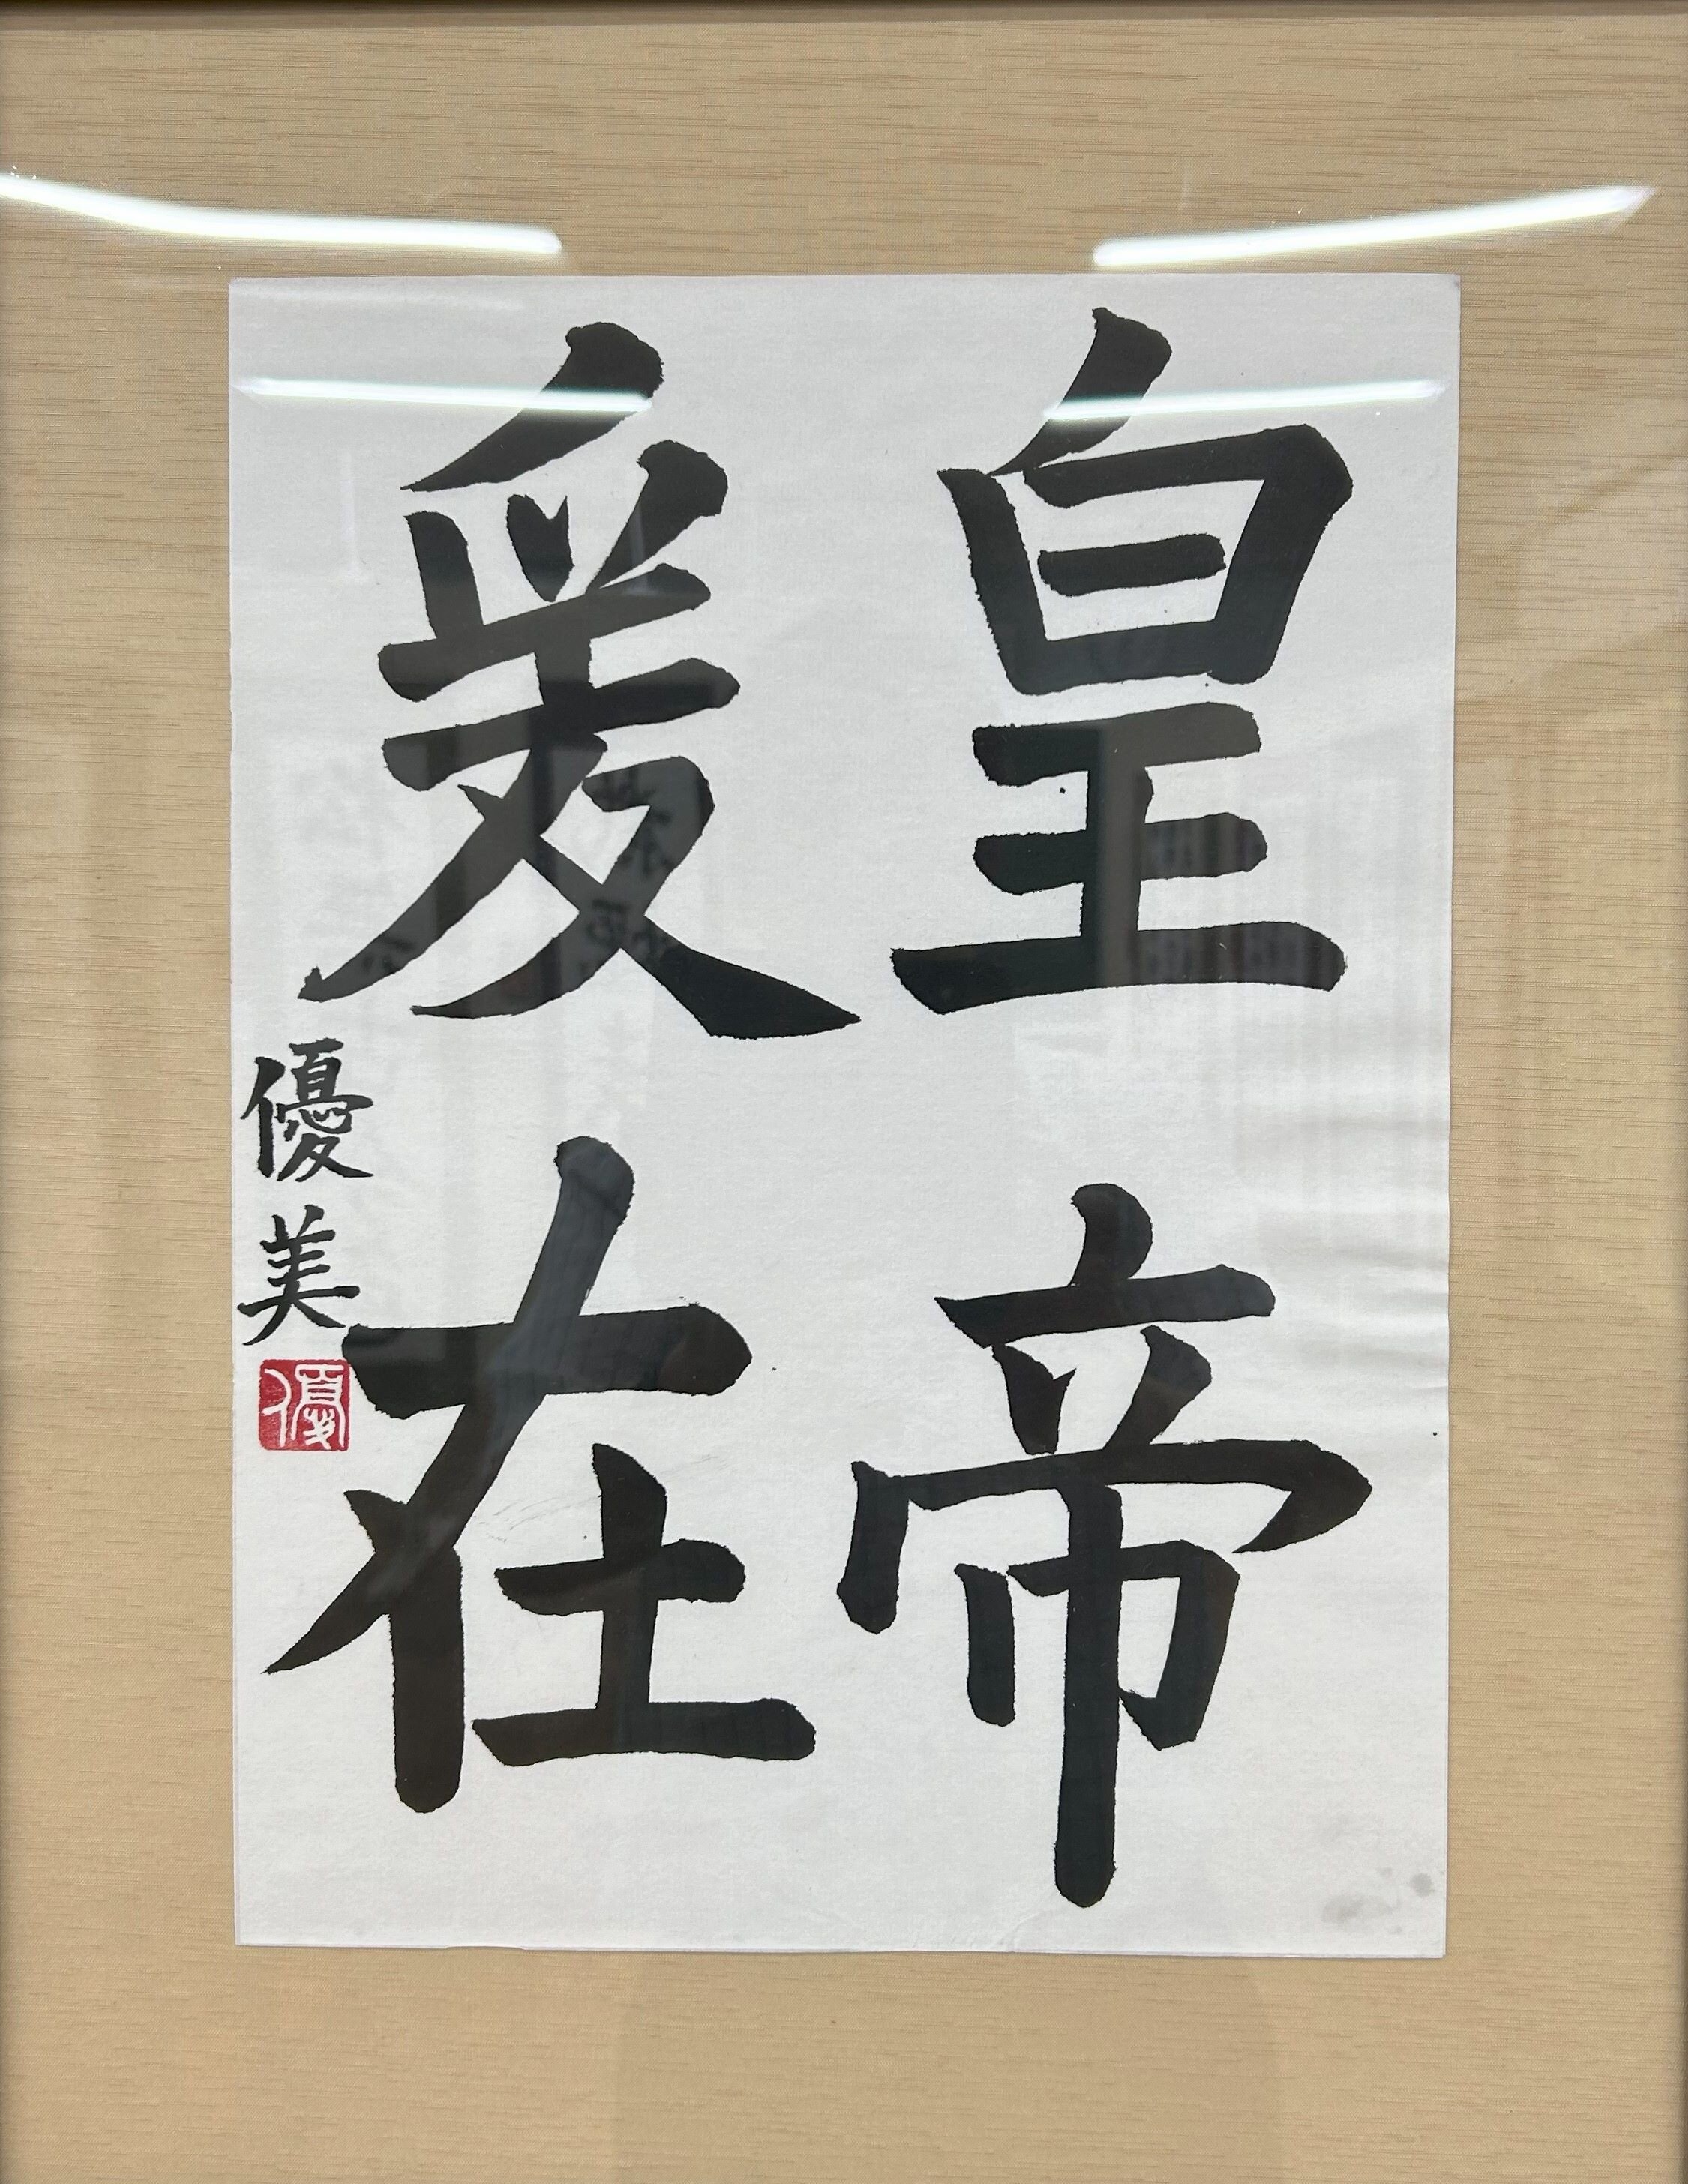 皇帝
爰在
優美
優